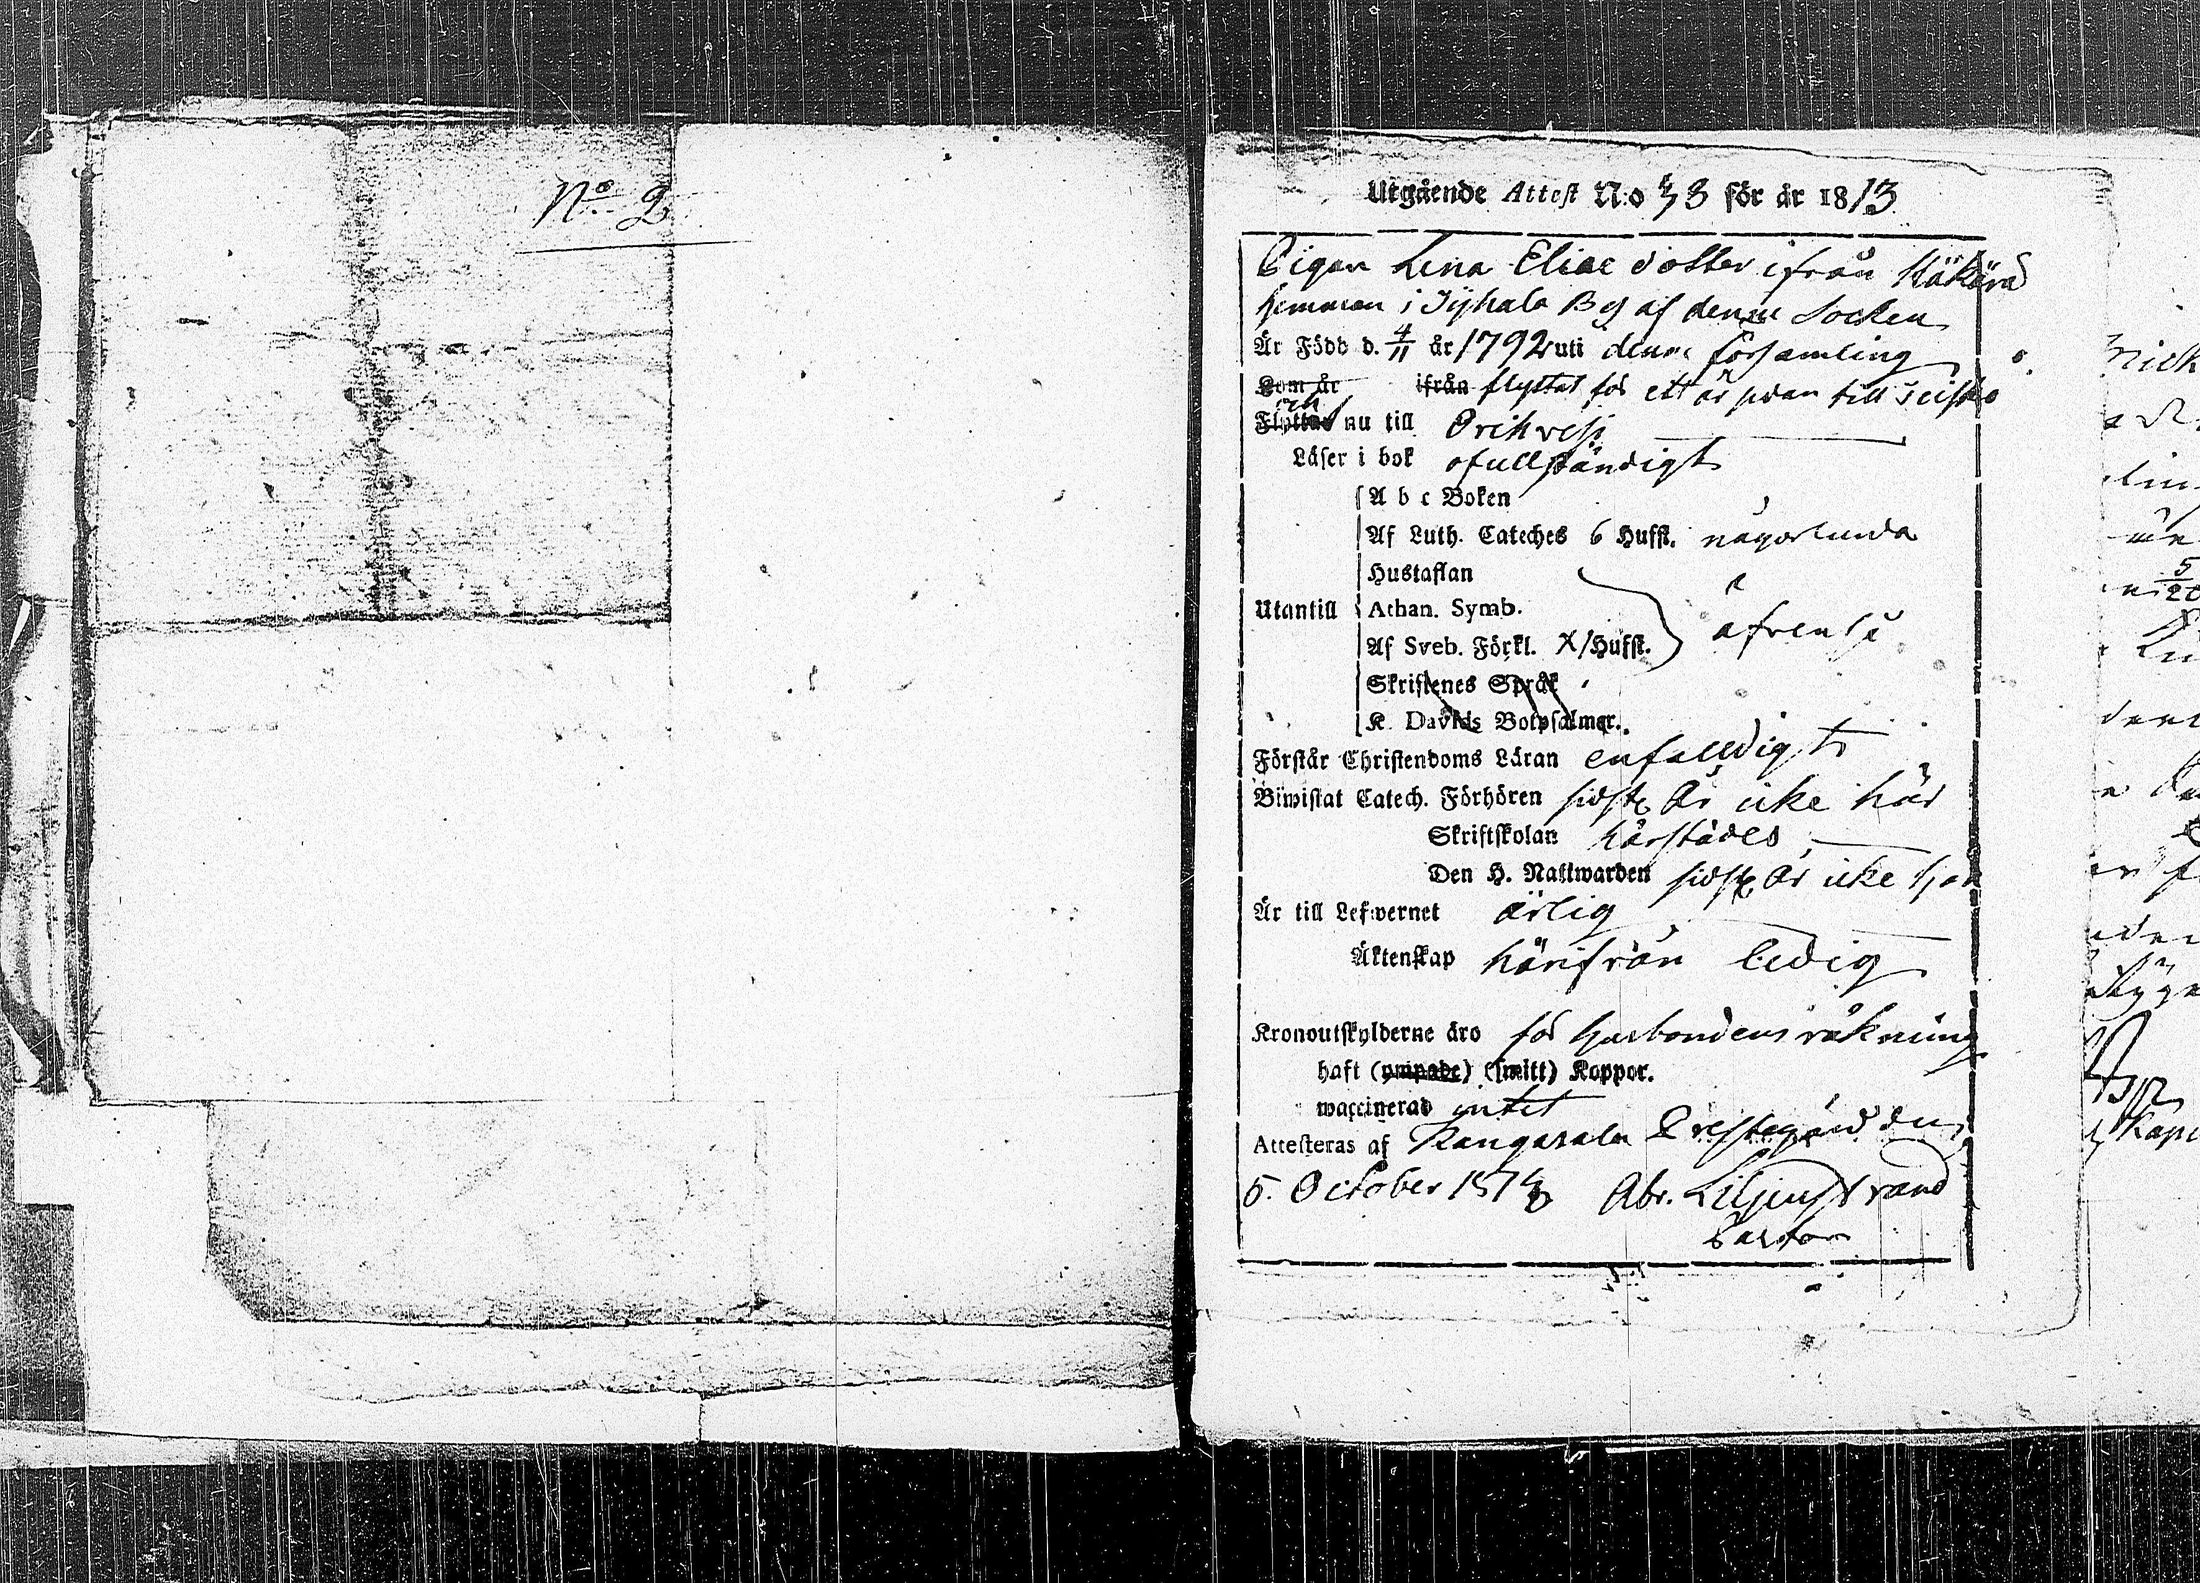 No 2
Utgående Attest N:o 48 för år 1813
Pigan Lena Eliae dotter ifrån
hemman i By af denne Socken
Är Född d. 4/11 år 1792 uti denne församling
Kom år ifrån flyttat för ett år sedan till
Flyttar nu till Orihvesi
Läser i bok ofullständigt
A b c Boken
Af Luth. Cateches 6 Hufst. någorlunda
Hustaflan
Utantill Athan. Symb.
Af Sveb. Förkl. X/Hufst.
Skriftenes Språk
K. Davids Botpsalmer.
Förstår Christendoms Läran enfalldigt
Biwistat Catech. Förhören sidst. år icke här
Skriftskolan härstädes
Den H. Nattwarden sidst. år icke här
Är till Lefwernet ärlig
Äktenskap härifrån ledig
Kronoutskylderne äro för husbondens räkning
haft (ympade) (smitt) Koppor.
waccinerad intet
Attesteras af Kangasala Prestegård den
5. October 1813 Abr. Liljenstrand
Pastor